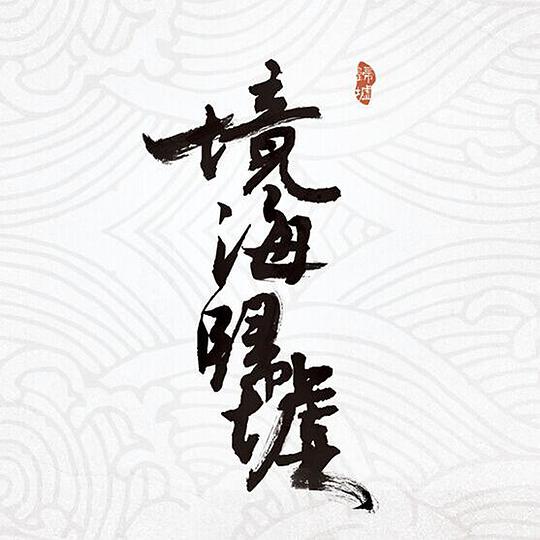 境海歸墟
歸墟